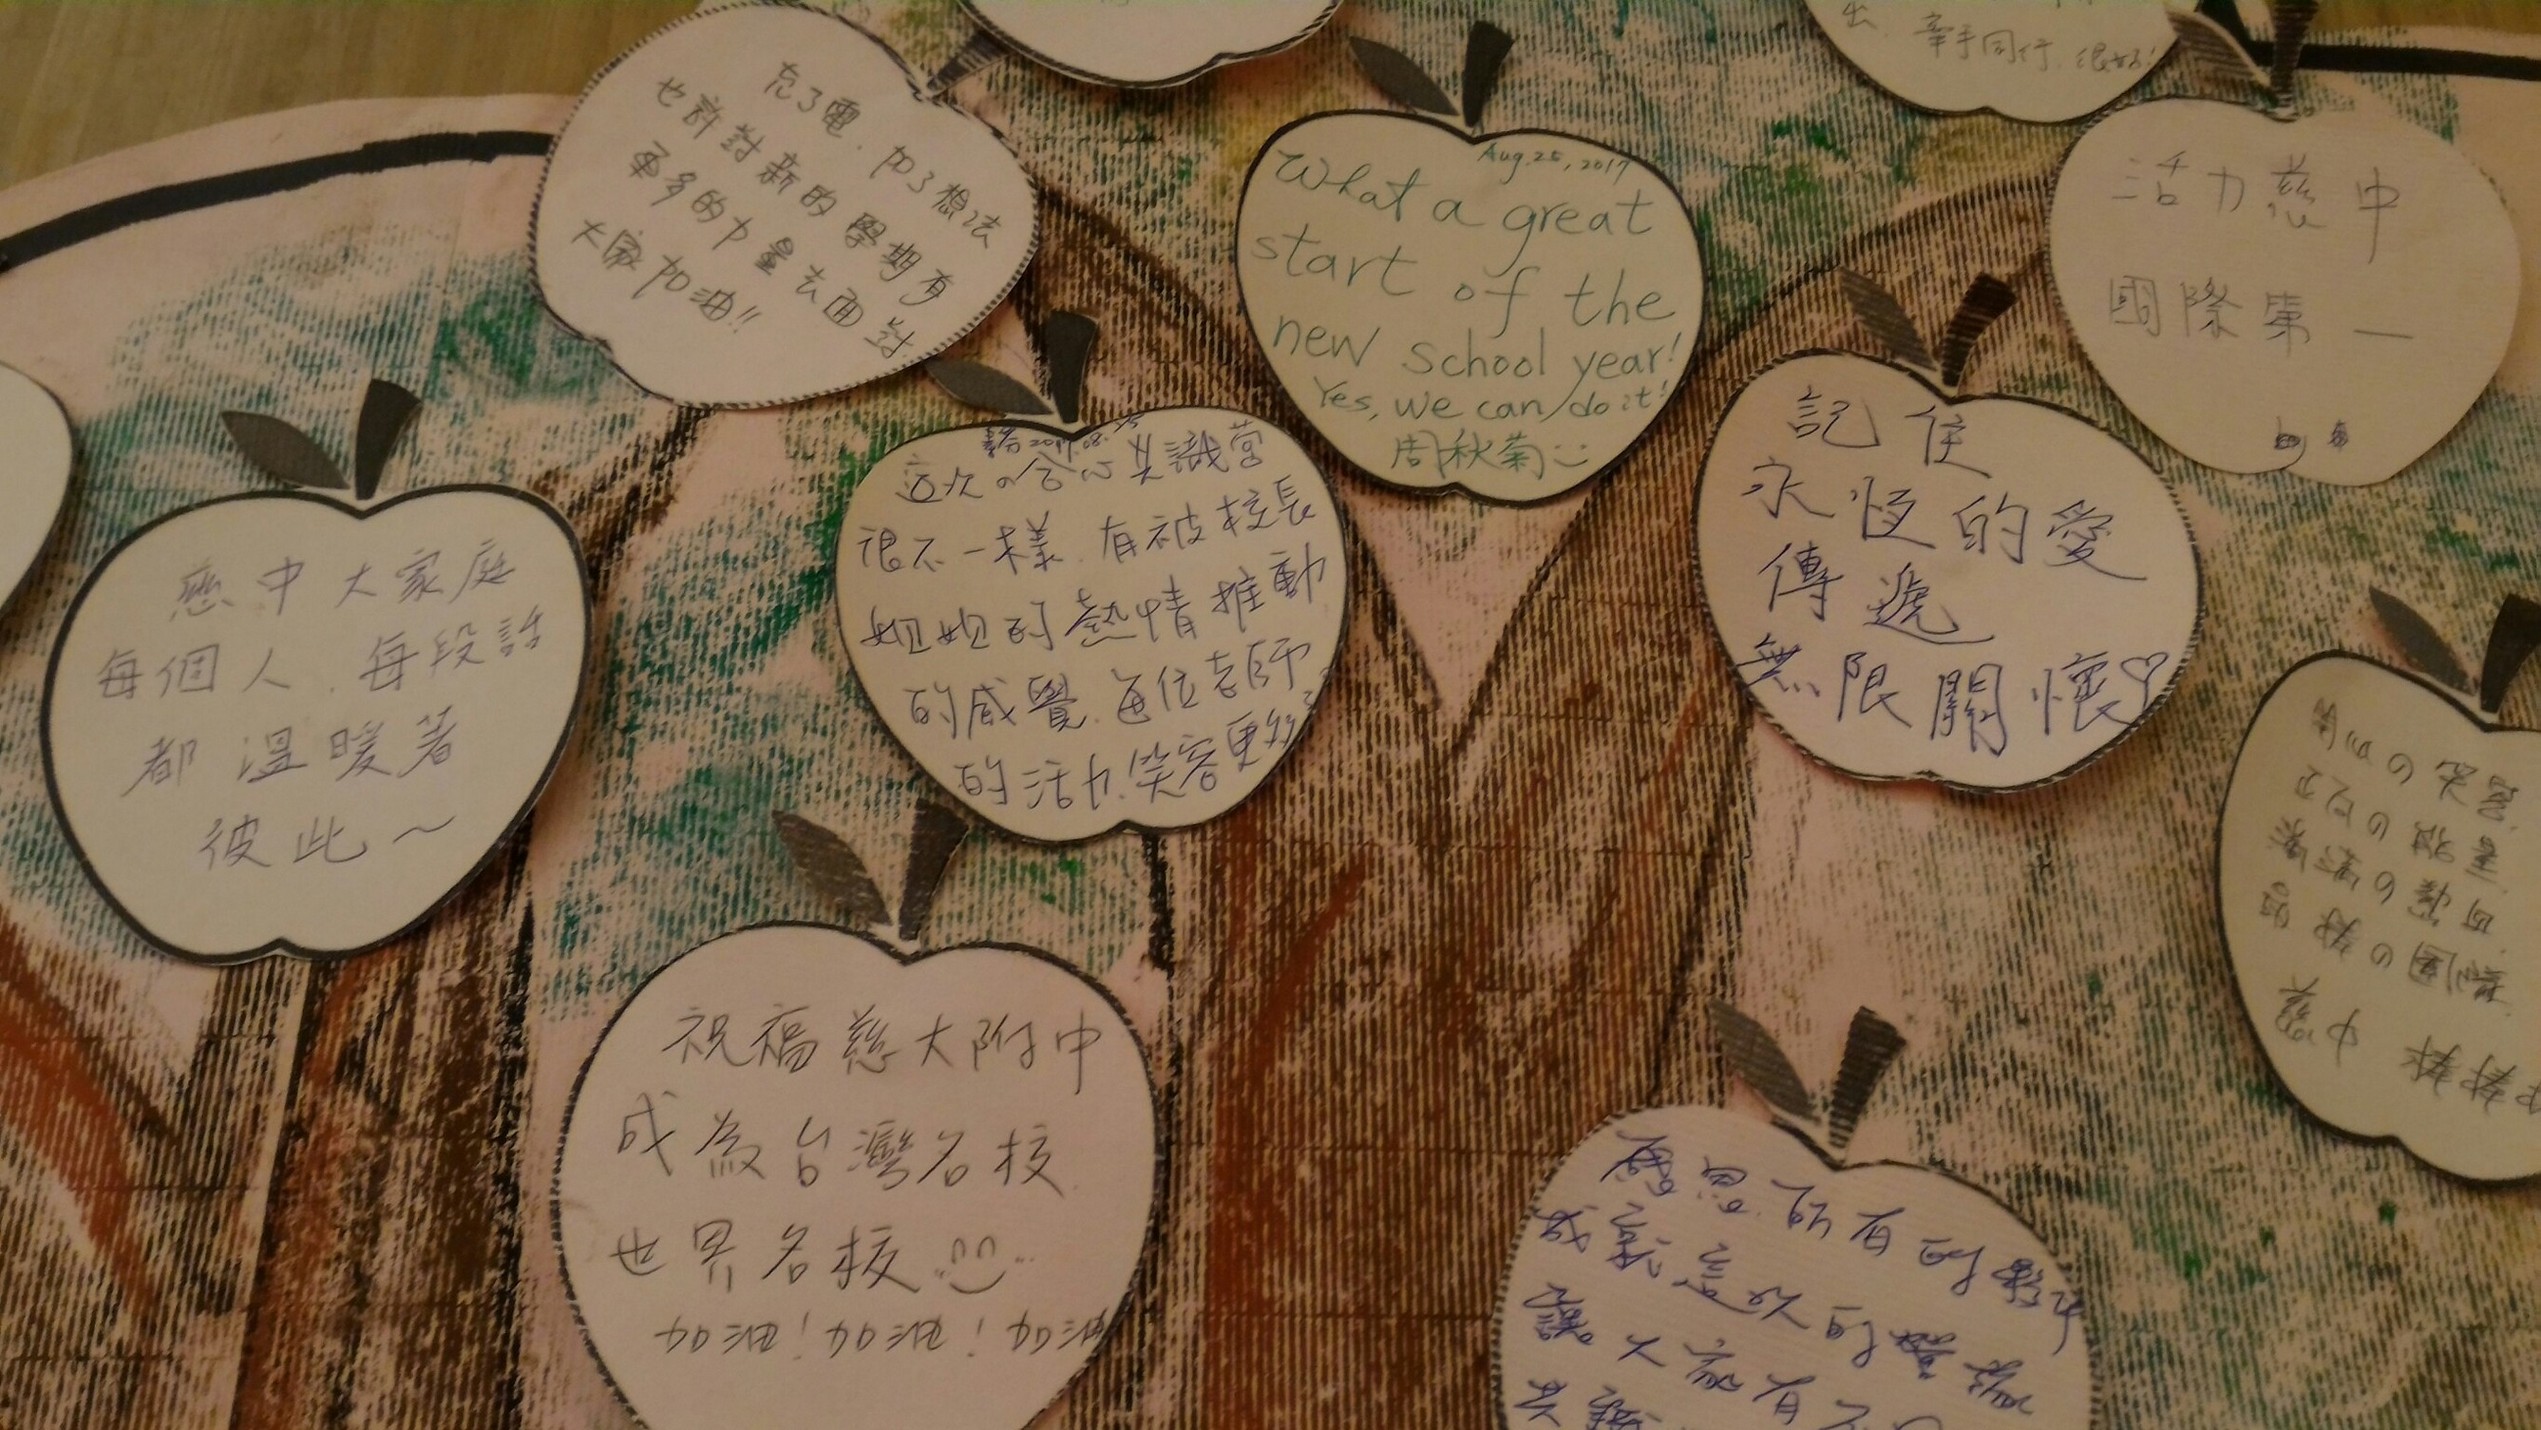 牽手同行,很好!
充了電,加了想法
也許對新的學期有
更多的力量去面對
大家加油!!
Aug.25,2017
What a great
start of the
new school year!
Yes, we can do it!
周秋菊
活力慈中
國際第一
記住
永恆的愛
傳遞
無限關懷
2017.08.25
這次の合心共識營
很不一樣,有被校長
姐姐的熱情推動
的感覺,每位老師
的活力、笑容更多
慈中大家庭
每個人、每段話
都溫暖著
彼此~
祝福慈大附中
成為台灣名校
世界名校
加油!加油!加油
感恩所有的夥伴
成就這次的體驗
讓大家有
慈中